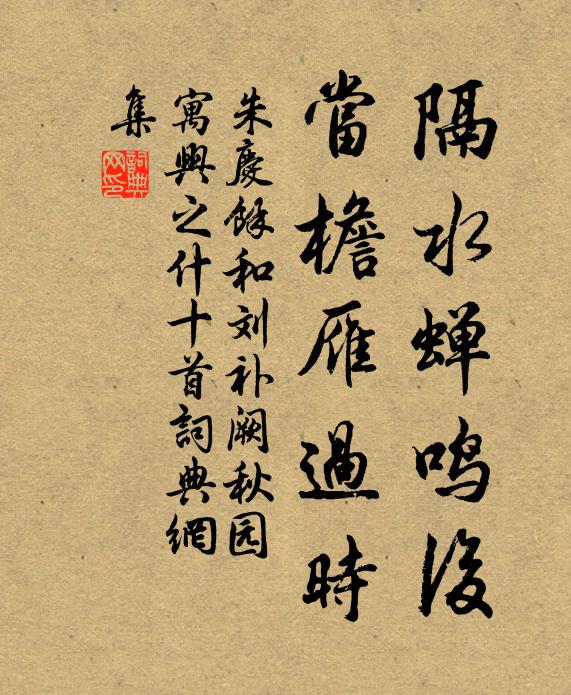 隔水蝉鸣后
當檐雁過時
朱慶馀和刘补阙秋园
寓興之什十首詞典網
集
詞典网印